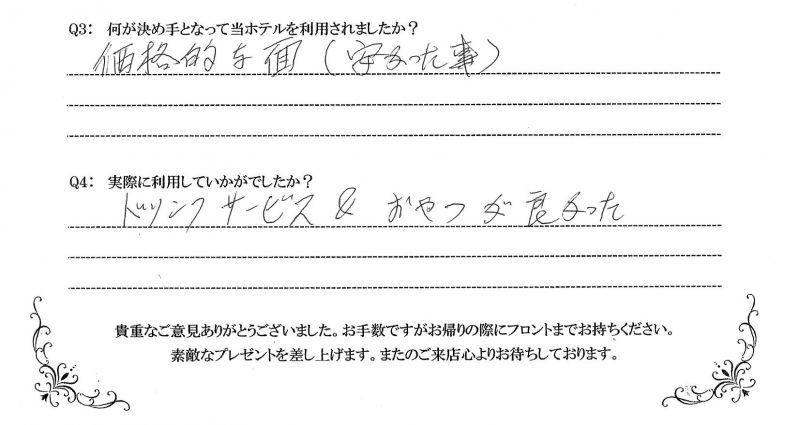 Q3： 何が決め手となって当ホテルを利用されましたか？
価格的な面（安かった事）
Q4： 実際に利用していかがでしたか？
ドリンクサービス & おやつが良かった
貴重なご意見ありがとうございました。お手数ですがお帰りの際にフロントまでお持ちください。
素敵なプレゼントを差し上げます。またのご来店心よりお待ちしております。